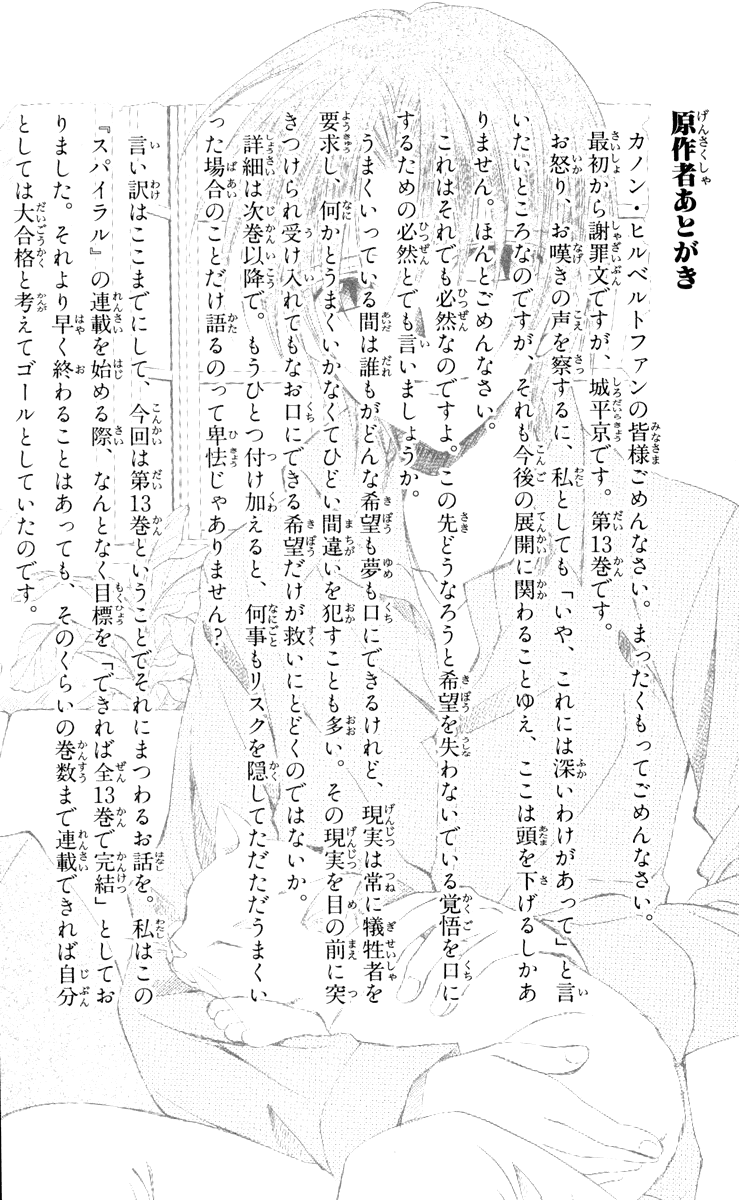 原作者あとがき
カノン・ヒルベルトファンの皆様ごめんなさい。まったくもってごめんなさい。
最初から謝罪文ですが、城平京です。第13巻です。
お怒り、お嘆きの声を察するに、私としても「いや、これには深いわけがあって」と言
いたいところなのですが、それも今後の展開に関わることゆえ、ここは頭を下げるしかあ
りません。ほんとごめんなさい。
これはそれでも必然なのですよ。この先どうなろうと希望を失わないでいる覚悟を口に
するための必然とでも言いましょうか。
うまくいっている間は誰もがどんな希望も夢も口にできるけれど、現実は常に犠牲者を
要求し、何かとうまくいかなくてひどい間違いを犯すことも多い。その現実を目の前に突
きつけられ受け入れてもなお口にできる希望だけが救いにとどくのではないか。
詳細は次巻以降で。もうひとつ付け加えると、何事もリスクを隠してただただうまくい
った場合のことだけ語るのって卑怯じゃありません？
言い訳はここまでにして、今回は第13巻ということでそれにまつわるお話を。私はこの
『スパイラル』の連載を始める際、なんとなく目標を「できれば全13巻で完結」としてお
りました。それより早く終わることはあっても、そのくらいの巻数まで連載できれば自分
としては大合格と考えてゴールとしていたのです。